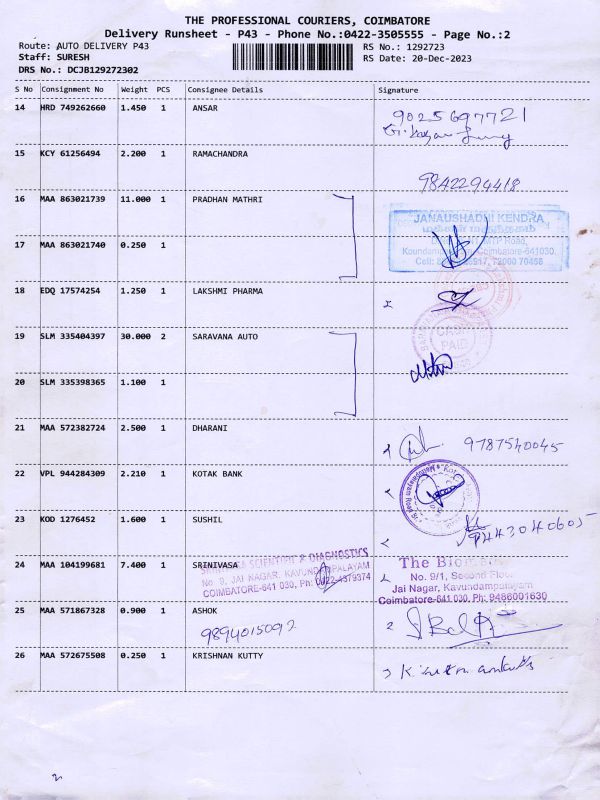 THE PROFESSIONAL COURIERS, COIMBATORE
Delivery Runsheet - P43 - Phone No.:0422-3505555 - Page No.:2
Route: AUTO DELIVERY P43 RS No.: 1292723
Staff: SURESH RS Date: 20-Dec-2023
DRS No.: DCJB129272302
S No Consignment No Weight PCS Consignee Details Signature
14 HRD 749262660 1.450 1 ANSAR
9025697721
15 KCY 61256494 2.200 1 RAMACHANDRA
9842294418
16 MAA 863021739 11.000 1 PRADHAN MATHRI
JANAUSHADHI KENDRA
MTP Road,
Coimbatore-641030.
Cell: 72000 70458
17 MAA 863021740 0.250 1
18 EDQ 17574254 1.250 1 LAKSHMI PHARMA
19 SLM 335404397 30.000 2 SARAVANA AUTO
CASH
PAID
20 SLM 335398365 1.100 1
21 MAA 572382724 2.500 1 DHARANI
9787540045
22 VPL 944284309 2.210 1 KOTAK BANK
23 KOD 1276452 1.600 1 SUSHIL
9443040605
24 MAA 104199681 7.400 1 SRINIVASA
SCIENTIFIC & DIAGNOSTICS
No. 9, JAI NAGAR, KAVUNDAMPALAYAM
COIMBATORE-641 030, Ph: 0422-4379374
The
No. 9/1, Second Floor
Jai Nagar, Kavundampalayam
Coimbatore-641 030, Ph: 9486001630
25 MAA 571867328 0.900 1 ASHOK
9894015092
26 MAA 572675508 0.250 1 KRISHNAN KUTTY
2